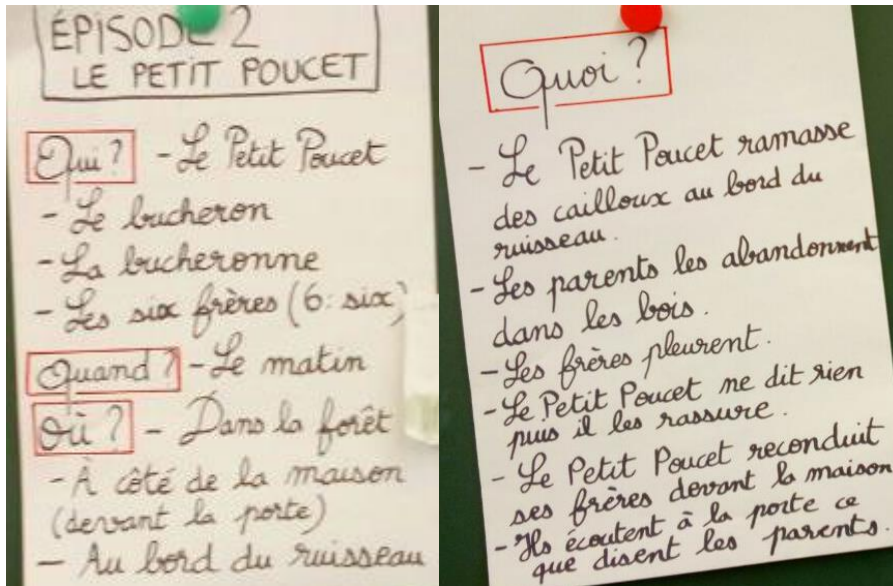 ÉPISODE 2
LE PETIT POUCET
Qui ? - Le Petit Poucet
- Le bucheron
- La bucheronne
- Les six frères (6: six)
Quand ? - Le matin
Où ? - Dans la forêt
- À côté de la maison
(devant la porte)
- Au bord du ruisseau
Quoi ?
- Le Petit Poucet ramasse
des cailloux au bord du
ruisseau.
- Les parents les abandonnent
dans les bois.
- Les frères pleurent.
- Le Petit Poucet ne dit rien
puis il les rassure.
- Le Petit Poucet reconduit
ses frères devant la maison
- Ils écoutent à la porte ce
que disent les parents.